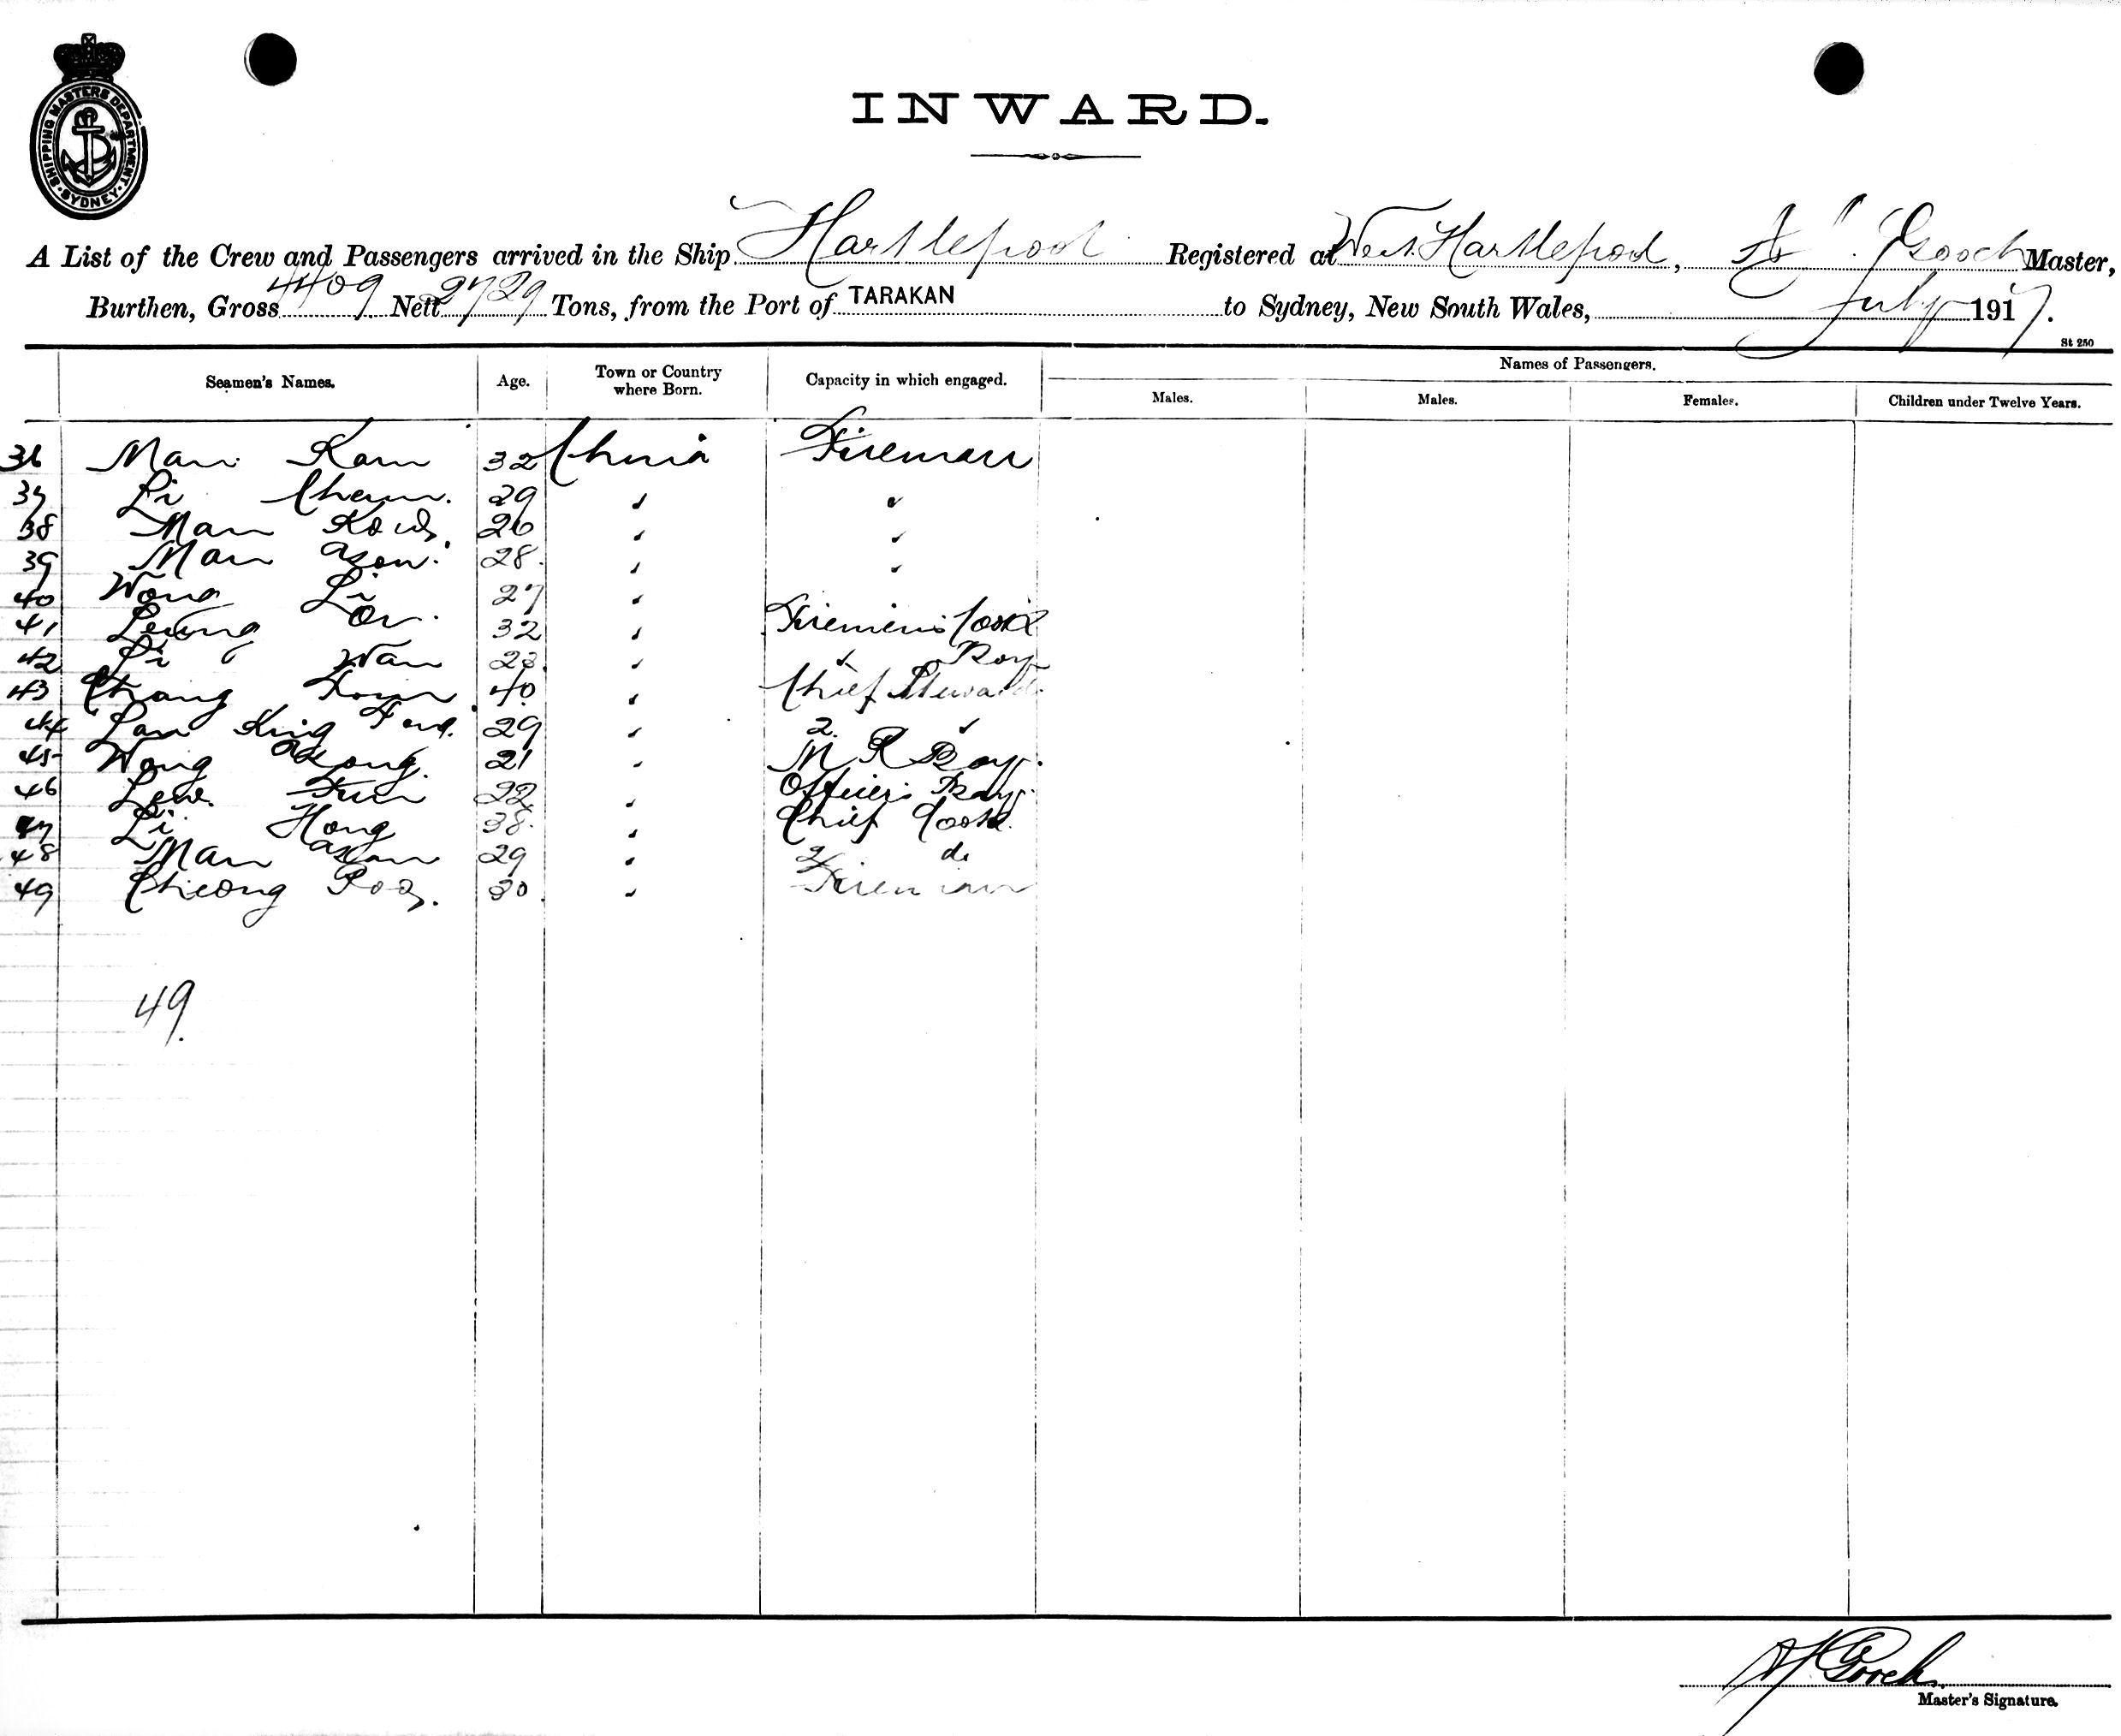 SHIPPING MASTERS DEPARTMENT · SYDNEY ·
INWARD.
A List of the Crew and Passengers arrived in the Ship Hartlepool Registered at West Hartlepool, Gooch Master,
Burthen, Gross 4409 Nett 2729 Tons, from the Port of TARAKAN to Sydney, New South Wales, July 1917.
St 250
Seamen's Names. Age. Town or Country where Born. Capacity in which engaged. Names of Passengers.
Males. Males. Females. Children under Twelve Years.
36 Man Kam 32 China Fireman
37 Li Cheun. 29 " "
38 Man 26 " "
39 Man 28. " "
40 Wong Li 27 "
41 Leung On. 32 " Firemen's Cook
42 Li Wan 23. " " Boy
43 Chang 40. " Chief Steward
44 Lau King 29 " 2. "
45 Wong 21 " M R Boy.
46 Lew. Fun 22 " Officers Boy.
47 Li Hong 38. " Chief Cook.
48 Man 29 " 2 do
49 Cheong 30. " Fireman
49.
Gooch
Master's Signature.